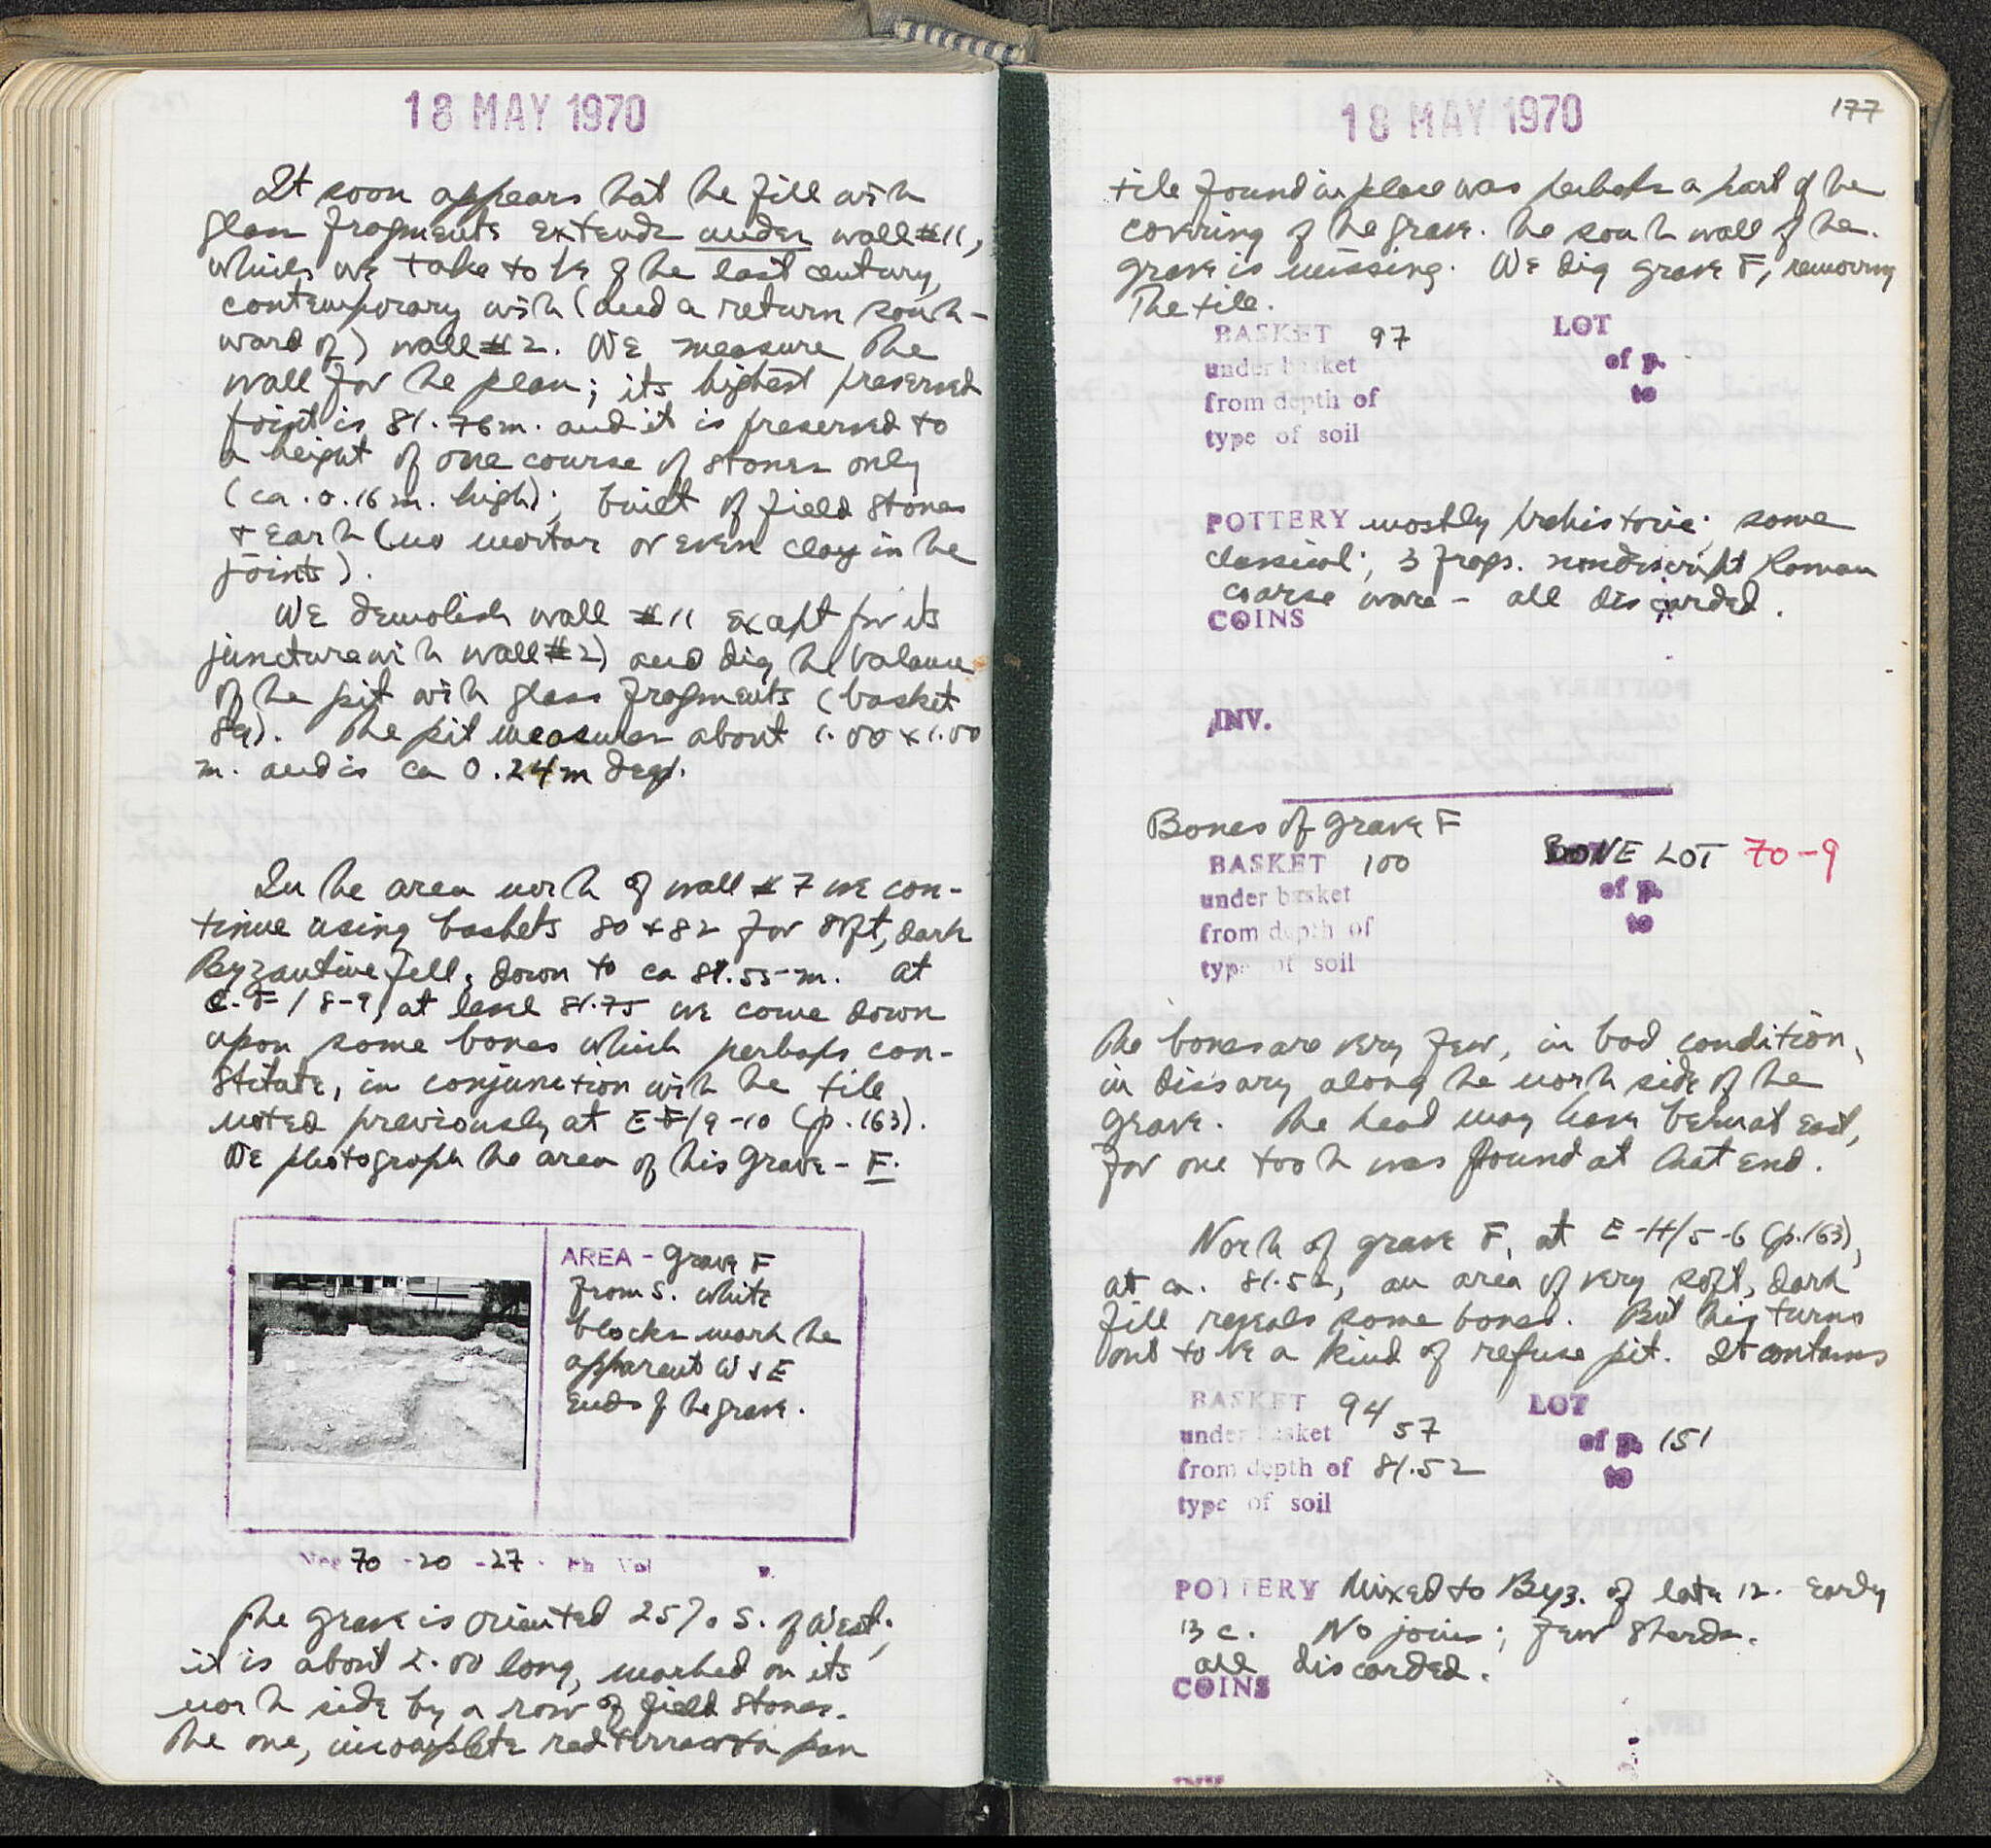 18 MAY 1970
It soon appears that the fill with
glass fragments extends under wall #11,
which we take to be of the last century,
contemporary with (and a return south-
ward of) wall #2. We measure the
wall for the plan; its highest preserved
point is 81.76m. and it is preserved to
a height of one course of stones only
(ca. 0.16 m. high); built of field stones
+ earth (no mortar or even clay in the
joints).
We demolish wall #11 except for its
juncture with wall #2) and dig the balance
of the pit with glass fragments (basket
89). The pit measures about 1.00 x 1.00
m. and is ca 0.24m deep.
In the area north of wall #7 we con-
tinue using baskets 80 + 82 for soft, dark
Byzantine fill, down to ca 81.55 m. At
E-F/8-9, at level 81.75 we come down
upon some bones which perhaps con-
stitute, in conjunction with the tile
noted previously at E-F/9-10 (p. 163).
We photograph the area of this grave - F.
AREA - Grave F
from S. White
blocks mark the
apparent W & E
ends of the grave.
Neg 70 -20 -27. Ph Vol p.
The grave is oriented 25% S. of West;
it is about 2.00 long, marked on its
north side by a row of field stones.
The one, incomplete red terracotta pan
18 MAY 1970
177
tile found in place was perhaps a part of the
covering of the grave. The south wall of the
grave is missing. We dig grave F, removing
the tile.
BASKET 97 LOT
under basket of p.
from depth of to
type of soil
POTTERY mostly prehistoric; some
classical; 3 frags. nondescript Roman
coarse ware - all discarded.
COINS
INV.
Bones of grave F
BASKET 100 BONE LOT 70-9
under basket of p.
from depth of to
type of soil
The bones are very few, in bad condition,
in dissary along the north side of the
grave. The head may have been at east,
for one tooth was found at that end.
North of grave F, at E-H/5-6 (p. 163),
at ca. 81.52, an area of very soft, dark
fill reveals some bones. But this turns
out to be a kind of refuse pit. It contains
BASKET 94 LOT
under basket 57 of p. 151
from depth of 81.52 to
type of soil
POTTERY Mixed to Byz. of late 12. early
13 c. No joins; few sherds.
all discarded.
COINS
INV.